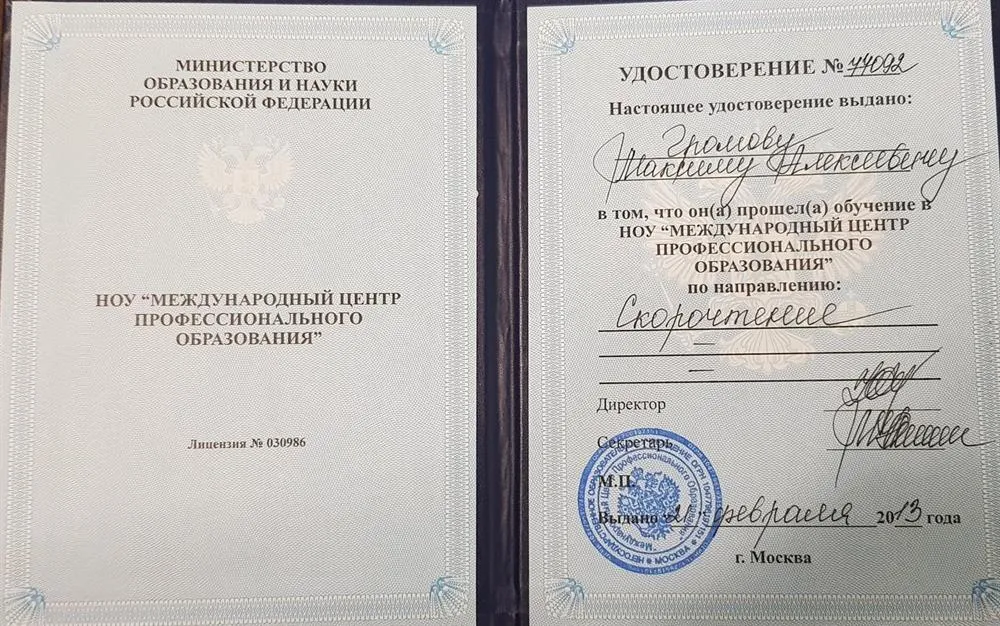 МИНИСТЕРСТВО
ОБРАЗОВАНИЯ И НАУКИ
РОССИЙСКОЙ ФЕДЕРАЦИИ
НОУ “МЕЖДУНАРОДНЫЙ ЦЕНТР
ПРОФЕССИОНАЛЬНОГО
ОБРАЗОВАНИЯ”
Лицензия № 030986
УДОСТОВЕРЕНИЕ № 77092
Настоящее удостоверение выдано:
Громову
Максиму Алексеевичу
в том, что он(а) прошел(а) обучение в
НОУ “МЕЖДУНАРОДНЫЙ ЦЕНТР
ПРОФЕССИОНАЛЬНОГО
ОБРАЗОВАНИЯ”
по направлению:
Скорочтение
—
—
Директор
Секретарь
М.П.
Выдано "21" февраля 2013 года
г. Москва
Международный Центр Профессионального Образования
МОСКВА